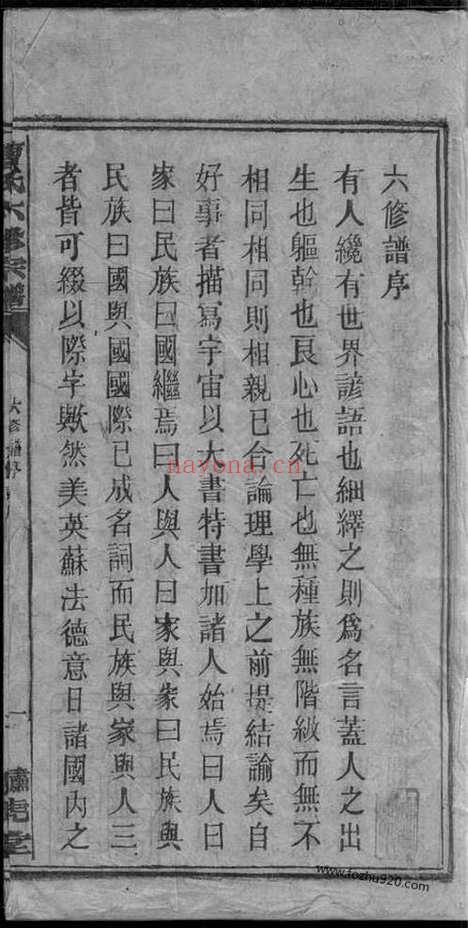 六修譜序
有人纔有世界諺語也細繹之則爲名言蓋人之出
生也軀幹也良心也死亡也無種族無階級而無不
相同相同則相親已合論理學上之前提結論矣自
好事者描寫宇宙以大書特書加諸人始焉曰人曰
家曰民族曰國繼焉曰人與人曰家與家曰民族與
民族曰國與國國際已成名詞而民族與家與人三
者皆可綴以際字歟然美英蘇法德意日諸國內之
氏六修宗譜
六修譜序
一
堂
nayona.cn
www.fozhu920.com